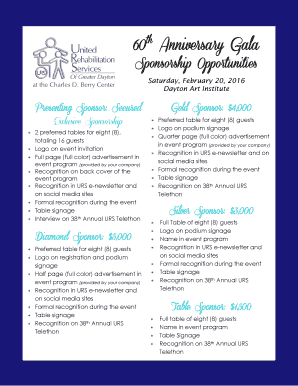 United
Rehabilitation
Services
Of Greater Dayton
URS
at the Charles D. Berry Center
60th Anniversary Gala
Sponsorship Opportunities
Saturday, February 20, 2016
Dayton Art Institute
Presenting Sponsor: Secured
Exclusive Sponsorship
• 2 preferred tables for eight (8),
totaling 16 guests
• Logo on event invitation
• Full page (full color) advertisement in
event program (provided by your company)
• Recognition on back cover of the
event program
• Recognition in URS e-newsletter and
on social media sites
• Formal recognition during the event
• Table signage
• Interview on 38th Annual URS Telethon
Diamond Sponsor: $5,000
• Preferred table for eight (8) guests
• Logo on registration and podium
signage
• Half page (full color) advertisement in
event program (provided by your company)
• Recognition in URS e-newsletter and
on social media sites
• Formal recognition during the event
• Table signage
• Recognition on 38th Annual URS
Telethon
Gold Sponsor: $4,000
• Preferred table for eight (8) guests
• Logo on podium signage
• Quarter page (full color) advertisement
in event program (provided by your company)
• Recognition in URS e-newsletter and on
social media sites
• Formal recognition during the event
• Table signage
• Recognition on 38th Annual URS Telethon
Silver Sponsor: $3,000
• Full Table of eight (8) guests
• Logo on podium signage
• Name in event program
• Recognition in URS e-newsletter and
on social media sites
• Formal recognition during the event
• Table signage
• Recognition on 38th Annual URS
Telethon
Table Sponsor: $1,500
• Full table of eight (8) guests
• Name in event program
• Table Signage
• Recognition on 38th Annual URS
Telethon